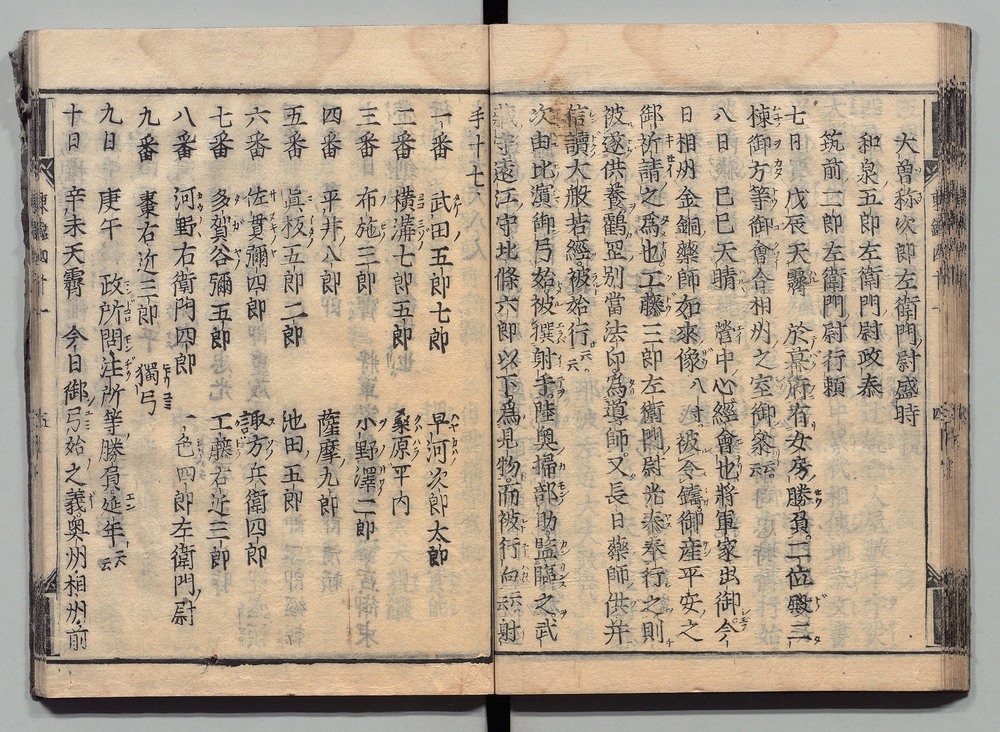 大曽祢次郎左衛門尉盛時
和泉五郎左衛門尉政泰
筑前二郎左衛門尉行頼
七日 戊辰天霽 於幕府有女房勝負二位殿三
棟御方等御會合相州之室御參云云
八日 己巳天晴 營中心經會也將軍家出御今
日相州金銅藥師如來像八寸被令鑄御産平安之
御祈請之爲也工藤三郎左衛門尉光泰奉行之則
被遂供養鶴岡別當法印爲導師又長日藥師供并
信讀大般若經被始行云云
次由比濱御弓始被撰射手陸奥掃部助監臨之武
藏守遠江守北條六郎以下爲見物而被行向云云射
手十七人
一番 武田五郎七郎 早河次郎太郎
二番 横溝七郎五郎 桑原平内
三番 布施三郎 小野澤二郎
四番 平井八郎 薩摩九郎
五番 眞板五郎二郎 池田五郎
六番 佐貫彌四郎 諏方兵衛四郎
七番 多賀谷彌五郎 工藤右近三郎
八番 河野右衛門四郎 一色四郎左衛門尉
九番 棗右近三郎 獨弓
九日 庚午 政所問注所等勝負延年云云
十日 辛未天霽 今日御弓始之義奥州相州前